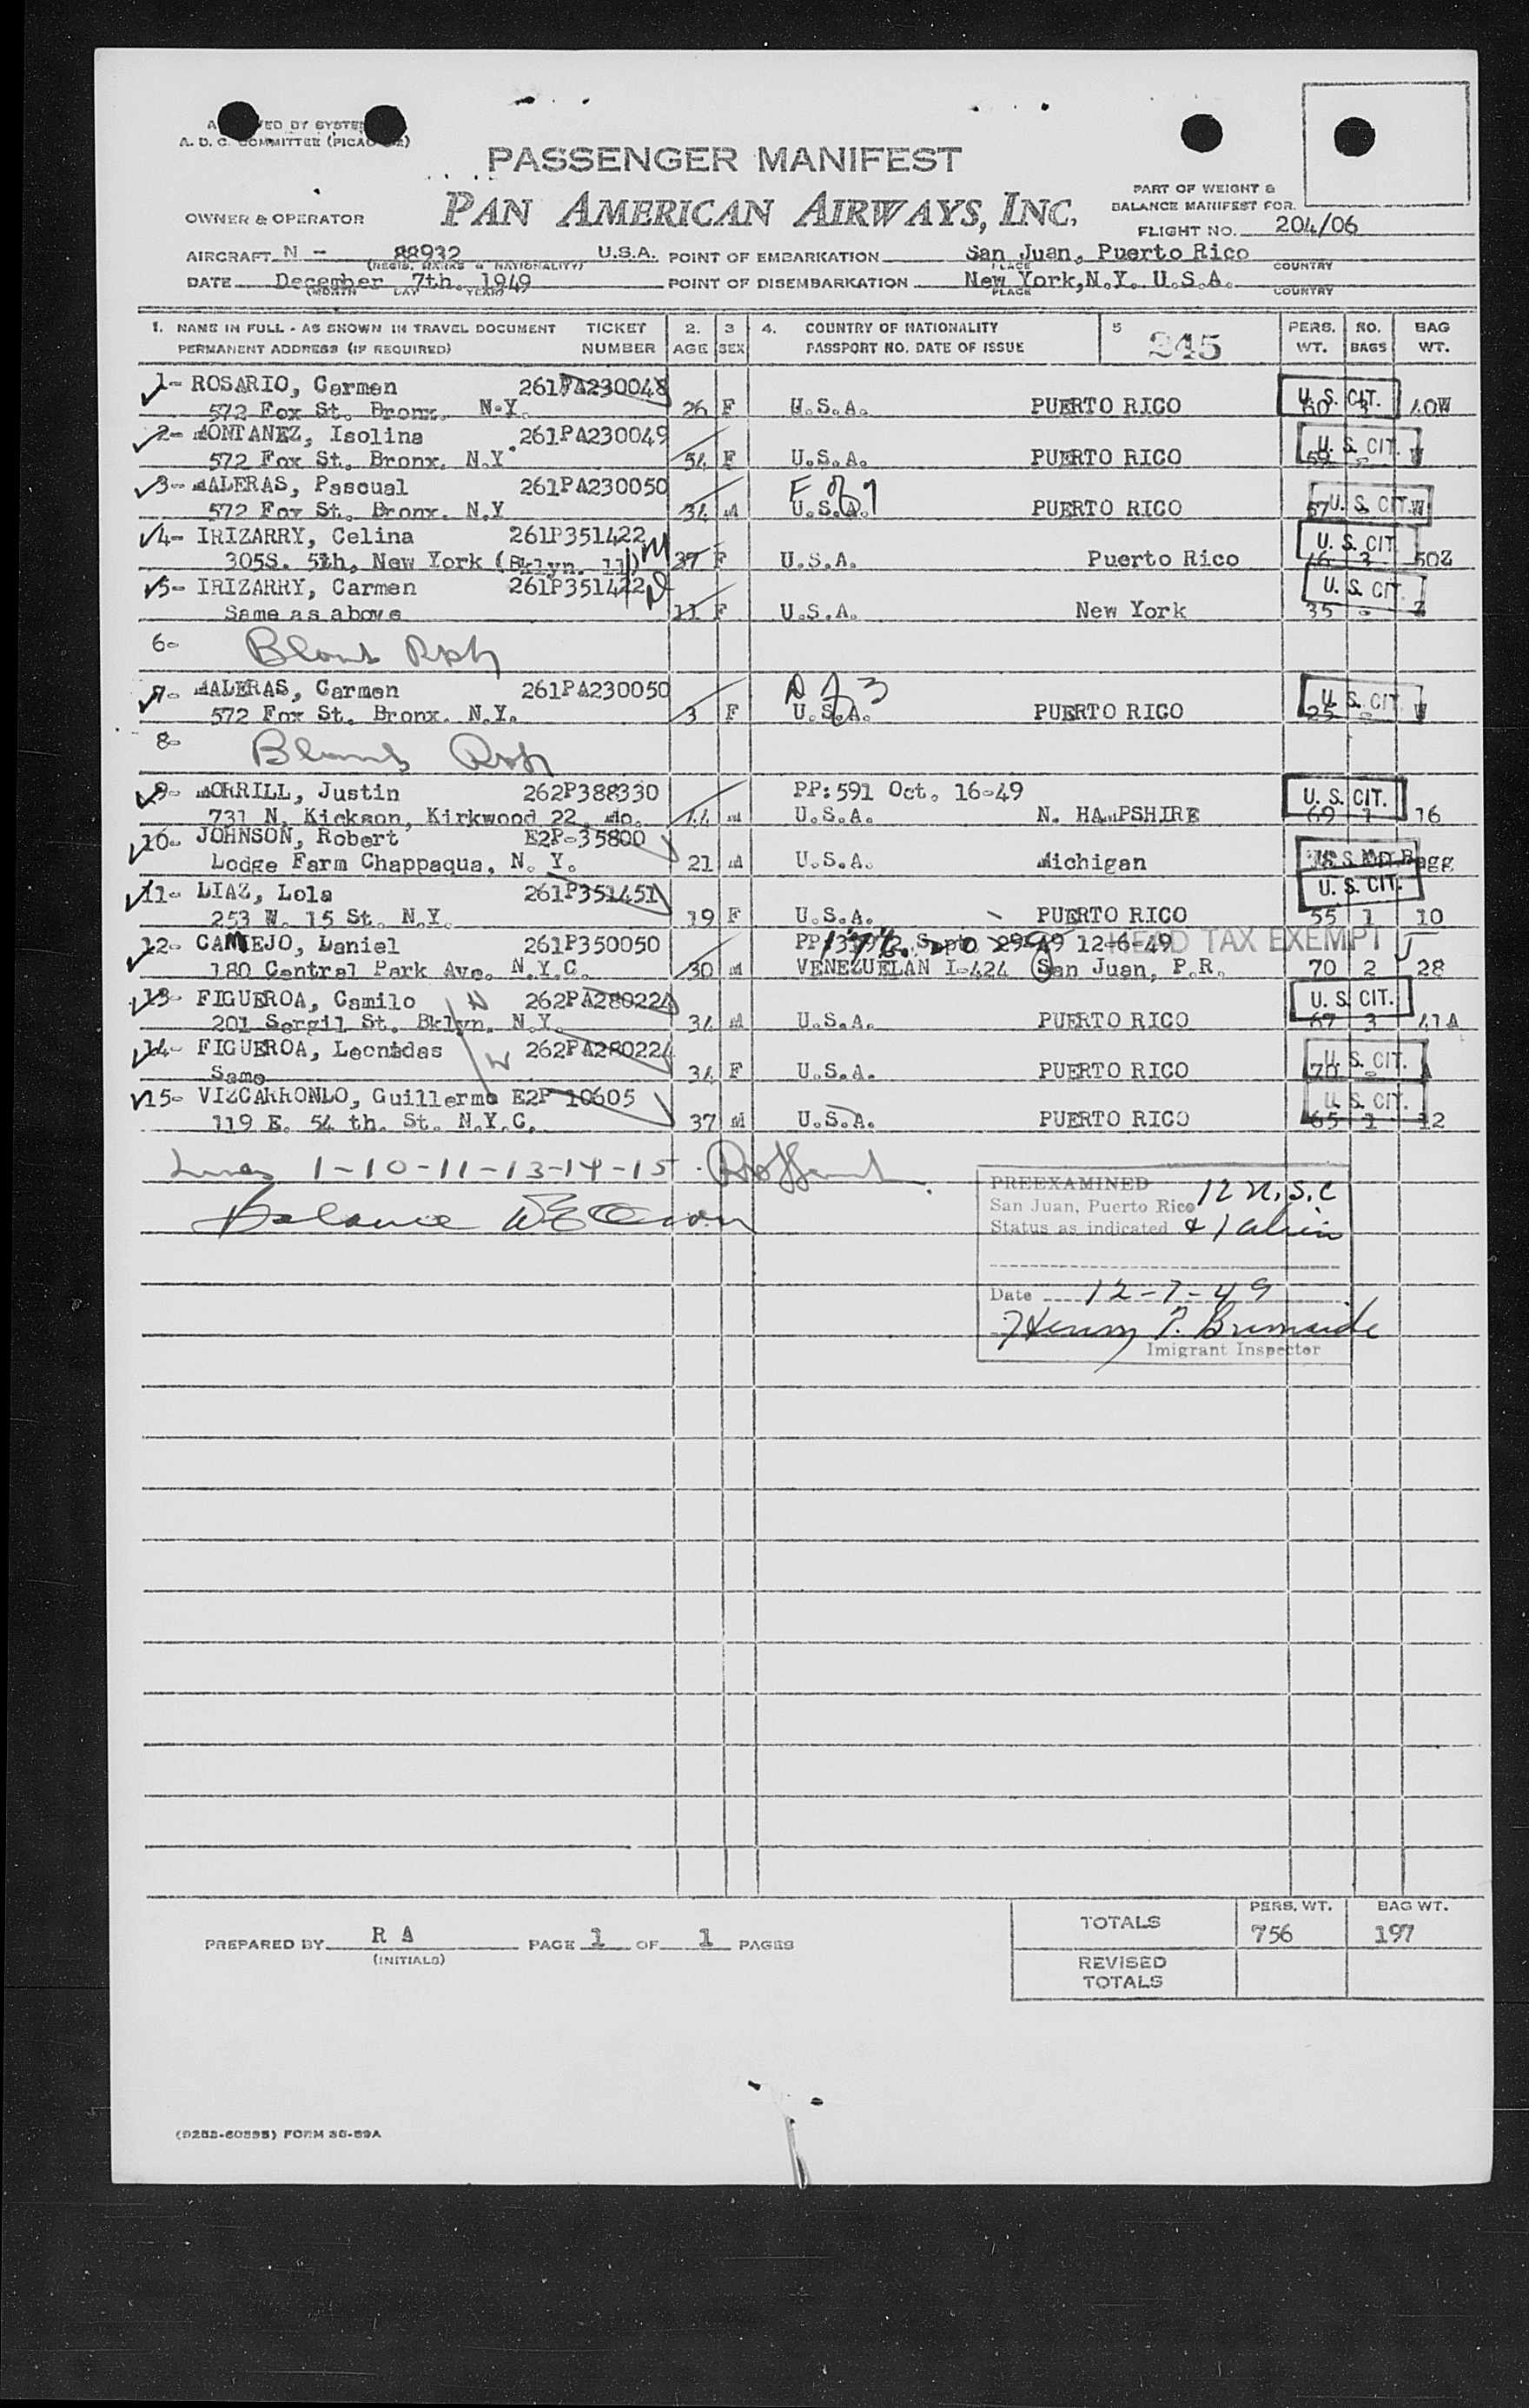 PASSENGER MANIFEST
PAN AMERICAN AIRWAYS, INC.
A. D. C. COMMITTEE
OWNER & OPERATOR
PART OF WEIGHT &
BALANCE MANIFEST FOR
FLIGHT NO. 204/06
AIRCRAFT N - 88932 U.S.A. POINT OF EMBARKATION San Juan, Puerto Rico
(REGIS. MARKS & NATIONALITY) PLACE COUNTRY
DATE December 7th. 1949 POINT OF DISEMBARKATION New York,N.Y. U.S.A.
(MONTH DAY YEAR) PLACE COUNTRY
1. NAME IN FULL - AS SHOWN IN TRAVEL DOCUMENT TICKET 2. 3 4. COUNTRY OF NATIONALITY 5 245 PERS. NO. BAG
PERMANENT ADDRESS (IF REQUIRED) NUMBER AGE SEX PASSPORT NO. DATE OF ISSUE WT. BAGS WT.
1- ROSARIO, Carmen 261PA230048 U. S. CIT.
572 Fox St. Bronx. N.Y. 26 F U.S.A. PUERTO RICO 60 3 40W
2- MONTANEZ, Isolina 261PA230049 U. S. CIT.
572 Fox St. Bronx. N.Y. 54 F U.S.A. PUERTO RICO 59 - W
3- MALERAS, Pascual 261PA230050 F of 7 U. S. CIT.
572 Fox St. Bronx. N.Y 34 M U.S.A. PUERTO RICO 67 - W
4- IRIZARRY, Celina 261P351422 M U. S. CIT.
305S. 5th, New York (Bklyn. 11) 37 F U.S.A. Puerto Rico 3 50Z
5- IRIZARRY, Carmen 261P351422 D U. S. CIT.
Same as above 11 F U.S.A. New York 35 - Z
6-
7- MALERAS, Carmen 261PA230050 D of 3 U. S. CIT.
572 Fox St. Bronx. N.Y. 3 F U.S.A. PUERTO RICO 25 - W
8-
9- MORRILL, Justin 262P388330 PP:591 Oct. 16-49 U. S. CIT.
731 N. Kickson, Kirkwood 22, Mo. 44 M U.S.A. N. HAMPSHIRE 69 1 16
10- JOHNSON, Robert E2P-35800
Lodge Farm Chappaqua, N. Y. 21 M U.S.A. Michigan
11- DIAZ, Lola 261P351451 U. S. CIT.
253 W. 15 St. N.Y. 19 F U.S.A. PUERTO RICO 55 1 10
12- CAMEJO, Daniel 261P350050 12-6-49 HEAD TAX EXEMPT
180 Central Park Ave. N.Y.C. 30 M VENEZUELAN I-424 San Juan, P.R. 70 2 28
13- FIGUEROA, Camilo H 262PA280224 U. S. CIT.
201 Sergil St. Bklyn. N.Y. 34 M U.S.A. PUERTO RICO 67 3 41A
14- FIGUEROA, Leonidas W 262PA280224 U. S. CIT.
Same 34 F U.S.A. PUERTO RICO 70 - A
15- VIZCARRONDO, Guillermo E2P 10605 U. S. CIT.
119 E. 54 th. St. N.Y.C. 37 M U.S.A. PUERTO RICO 65 1 12
Lines 1-10-11-13-14-15.
Balance
PREEXAMINED
San Juan, Puerto Rico 12 U.S.C
Status as indicated & 1 alien
Date 12-7-49
Imigrant Inspector
PREPARED BY R A PAGE 1 OF 1 PAGES
(INITIALS)
TOTALS PERS. WT. 756 BAG WT. 197
REVISED
TOTALS
FORM